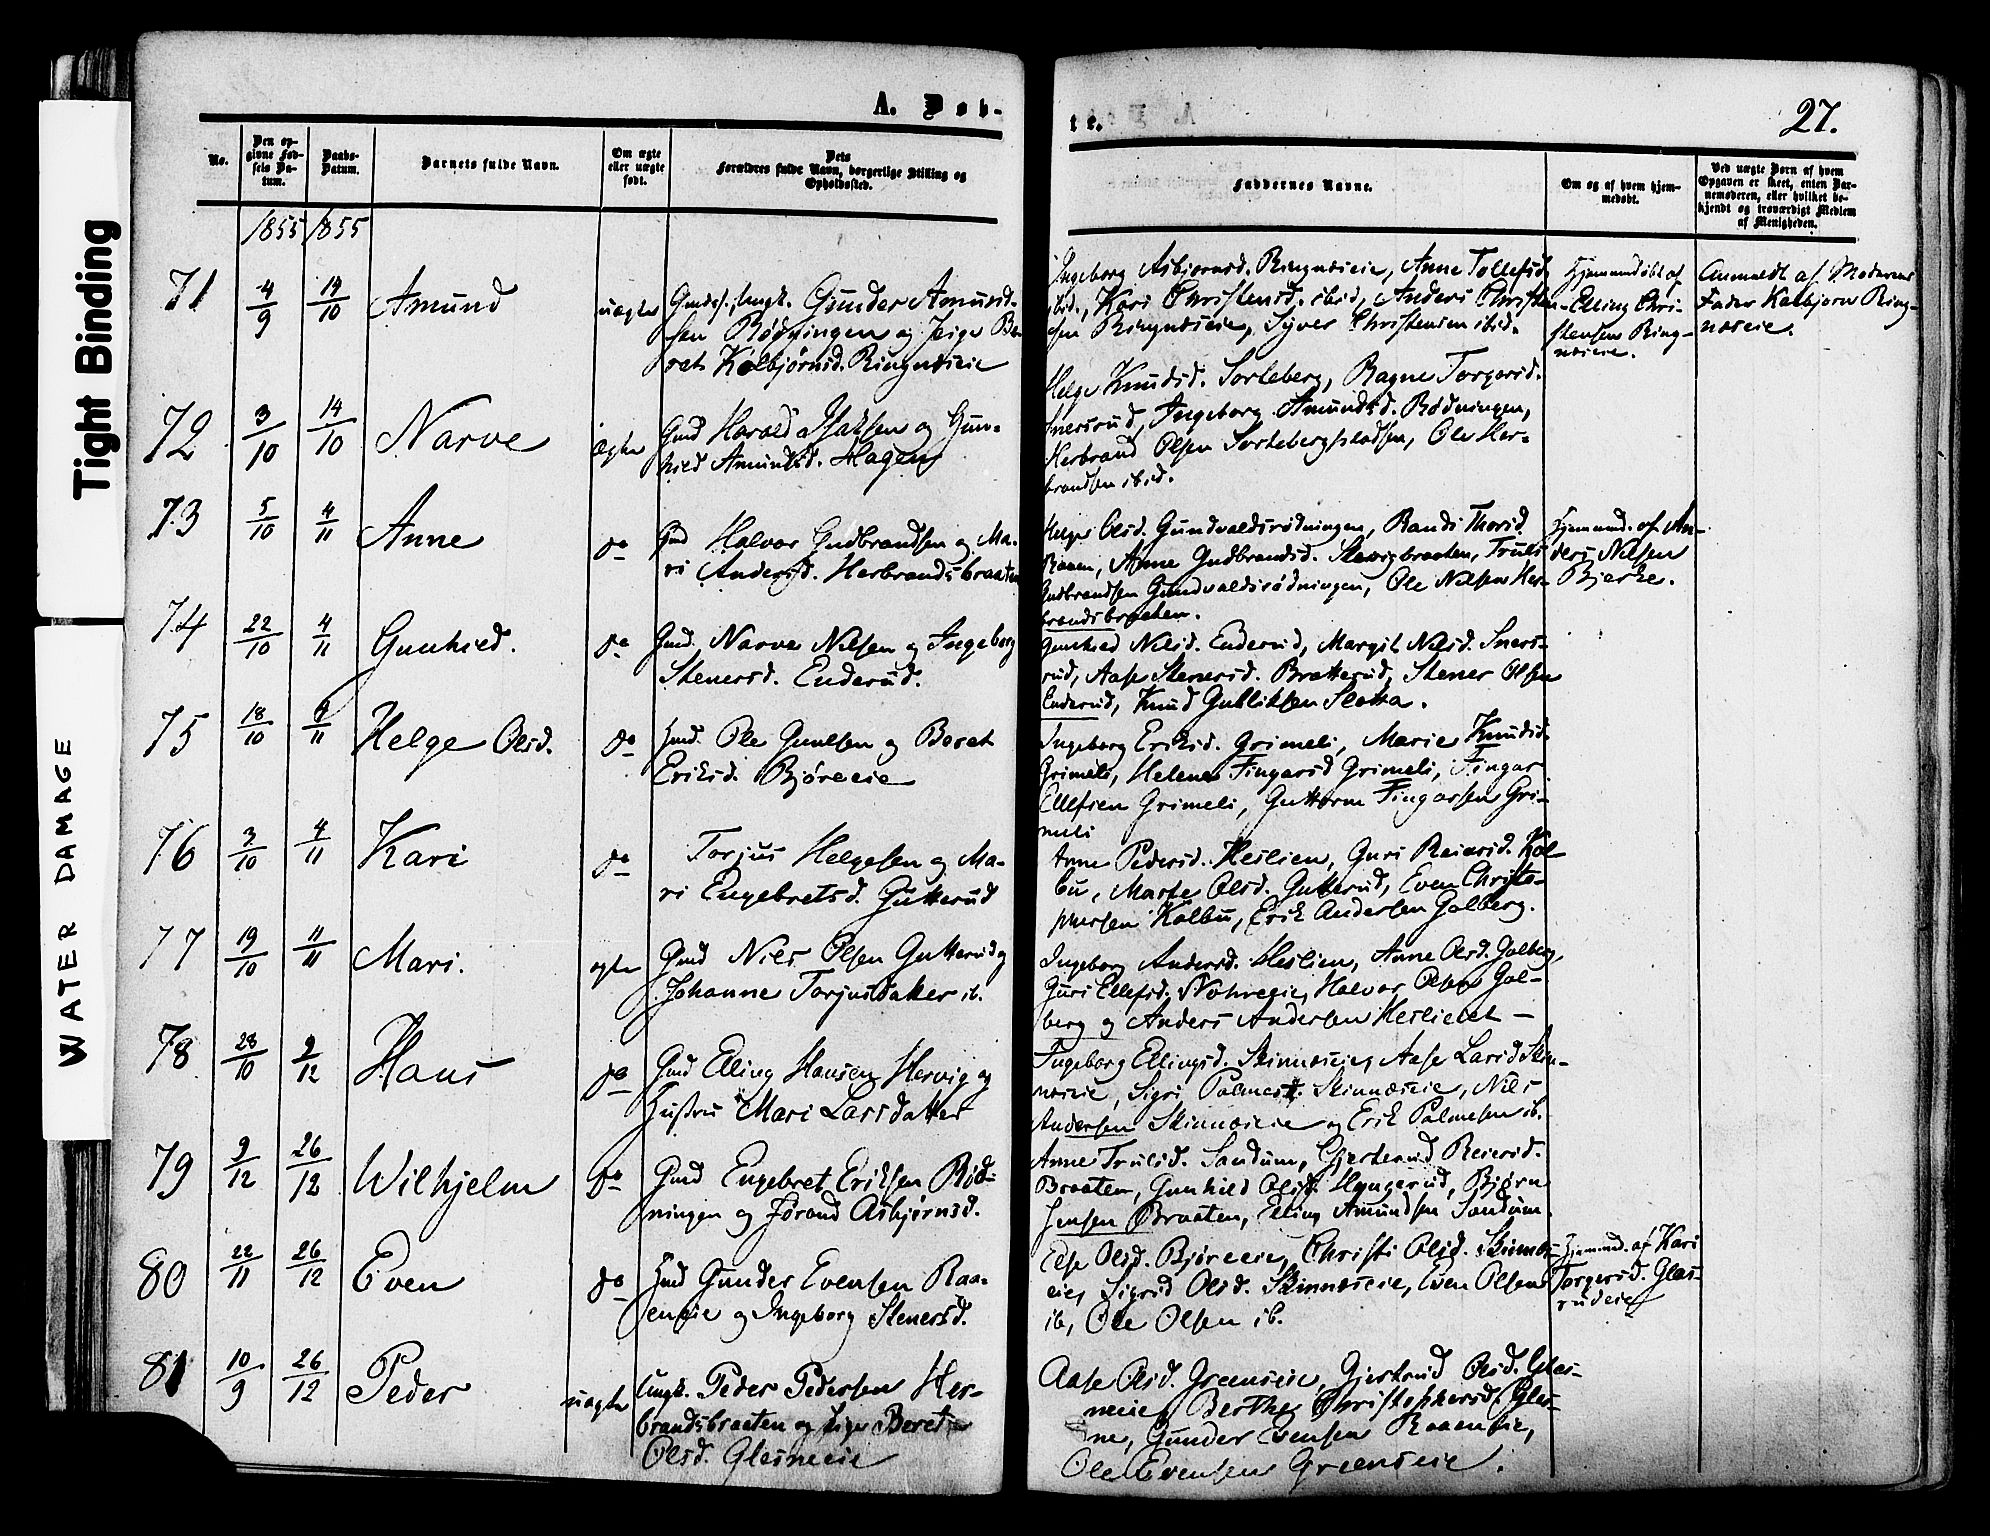 Tight Binding
WATER DAMAGE
A. Døb-
te.
27.
No.
Den op-
givne Fød-
sels Da-
tum.
Daabs-
Datum.
Barnets fulde Navn.
Om ægte
eller uægte
født.
Dets
Forældres fulde Navn, borgerlige Stilling og
Opholdssted.
Faddernes Navne.
Om og af hvem hjem-
medøbt.
Ved uægte Børn af hvem
Opgaven er skeet, enten Bar-
nemoderen, eller hvilket be-
kjendt og troværdigt Medlem
af Menigheden.
1855 1855
71 4/9 14/10 Amund uægte Gunder Amund-
sen Rødningen og Pige Be-
ret Kolbjørnsd. Ringnæseie
Ingeborg Asbjørnsd. Ringnæseie, Anne Tollefsd.
ibid., Kari Christensd. ibid, Anders Christen-
sen Ringnæseie, Syver Christensen ibid.
Hjemmedøbt af
Elling Chri-
stensen Ring-
næseie.
Anmeldt af Moderens
Fader Kolbjørn Ring-
næseie.
72 3/10 14/10 Narve Ægte Gmd Harald Isaksen og Gun-
hild Amundsd. Hagen
Helge Knudsd. Sorteberg, Ragne Torgersd.
Snersrud, Ingeborg Amundsd. Rødningen,
Herbrand Olsen Sortebergpladsen, Ole Her-
brandsen ibid.
73 5/10 4/11 Anne do Gmd Halvor Gudbrandsen og Ma-
ri Andersd. Herbrandsbraaten
Helge Olsd. Gundvaldsrødningen, Randi Thorsd.
Raaen, Anne Gudbrandsd. Skarsbraaten, Truls
Gudbrandsen Gundvaldsrødningen, Ole Nilsen Her-
brandsbraaten.
Hjemmed. af An-
ders Nilsen
Bjerke.
74 22/10 4/11 Gunhild. do Gmd. Narve Nilsen og Ingeborg
Stenersd. Enderud.
Gunhild Nilsd. Enderud, Margit Nilsd. Sners-
rud, Aase Stenersd. Bratterud, Stener Olsen
Enderud, Knud Gulliksen Sletta.
75 18/10 4/11 Helge Olsd. do Hmd. Ole Gunilsen og Beret
Eriksd. Bjøreeie
Ingeborg Eriksd. Grimeli, Marie Knudsd.
Grimeli, Helene Fingarsd Grimeli, Fingar
Ellefsen Grimeli, Guttorm Fingarsen Gri-
meli
76 3/10 4/11 Kari do Torjus Helgesen og Ma-
ri Engebretsd. Gutterud
Anne Pedersd. Heslien, Guri Reiersd. Kol-
bu, Marte Olsd. Gutterud, Even Christo-
phersen Kolbu, Erik Andersen Golberg.
77 19/10 11/11 Mari. ægte Gmd Nils Olsen Gutterud og
Johanne Torjusdatter ib.
Ingeborg Andersd. Heslien, Anne Olsd. Golberg,
Guri Ellefsd. Nohreeie, Halvor Olsen Gol-
berg og Anders Andersen Heslieiet –
78 28/10 9/12 Hans do Gmd Elling Hansen Hervig og
Hustru Mari Larsdatter
Ingeborg Ellingsd. Skinnæseie, Aase Larsd Skin-
næseie, Sigri Palmesd. Skinnæseie, Nils
Andersen Skinnæseie og Erik Palmesen ib.
79 9/12 26/12 Wilhjelm do Gmd Engebret Eriksen Rød-
ningen og Jørand Asbjørnsd.
Anne Trulsd. Sandum, Gjertrud Reiersd.
Braaten, Gunhild Olsd. Hungerud, Bjørn
Jensen Braaten, Elling Amundsen Sandum.
80 22/11 26/12 Even do Hmd Gunder Evensen Raa-
eneie og Ingeborg Stenersd.
Else Olsd. Bjøreeie, Christi Olsd. Skinnæs-
eie, Sigrid Olsd. Skinnæseie, Even Olsen
ib, Ole Olsen ib.
Hjemmed. af Kari
Torgersd. Glas-
rudeie
81 10/9 26/12 Peder uægte Ungk. Peder Pedersen Her-
brandsbraaten og Pige Beret
Olsd. Glesneeie
Aase Olsd. Grøenseie, Gjertrud Olsd. Gles-
neeie, Berthe Christophersd. Gles-
ne, Gunder Evensen Raaeneie,
Ole Evensen Grøenseie.